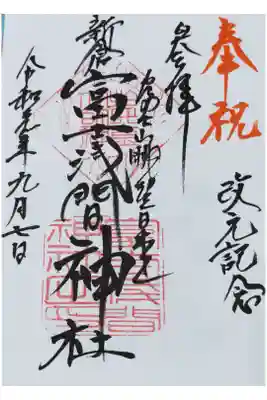 奉祝
改元記念
奉拝
冨士山眺望日本一
新倉
冨士浅間神社
令和元年九月七日